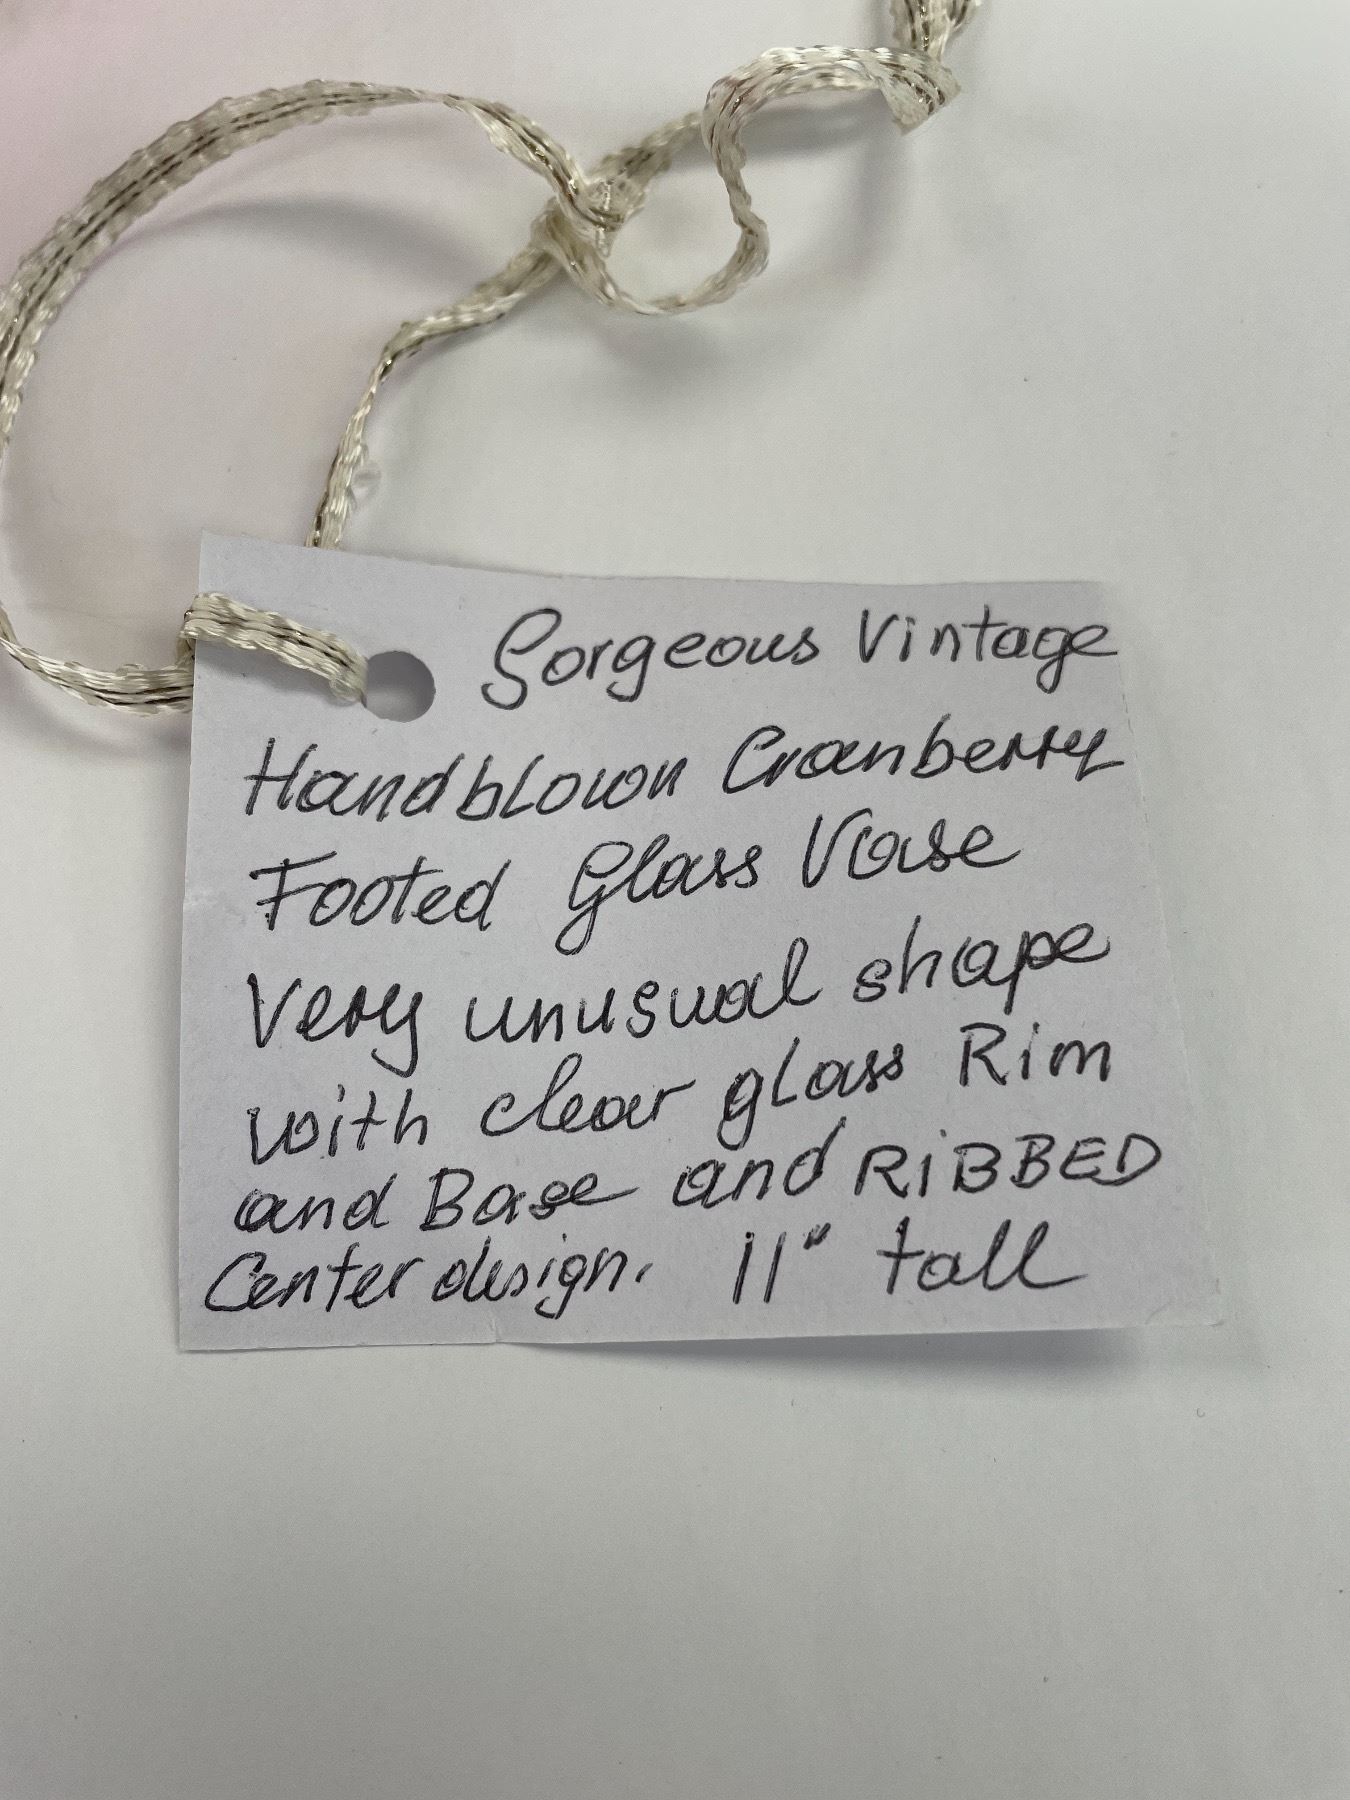 Gorgeous Vintage
Handblown Cranberry
Footed Glass Vase
Very unusual shape
with clear glass Rim
and Base and RiBBED
Center design. 11" tall